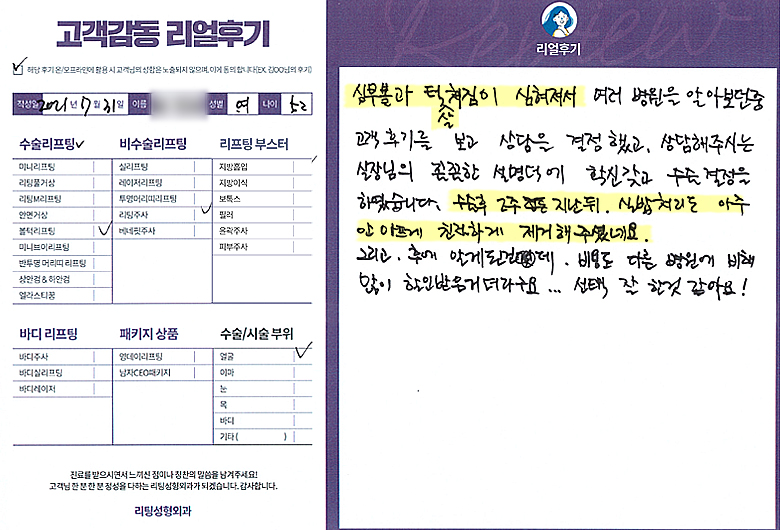 고객감동 리얼후기
해당 후기 온/오프라인에 활용 시 고객님의 성함은 노출되지 않으며, 이에 동의 합니다(EX. 김OO님의 후기)
작성일 2021년 7월 31일 이름 성별 여 나이 52
수술리프팅
미니리프팅
리팅풀거상
리팅M리프팅
안면거상
볼턱리프팅
미니브이리프팅
반투명 머리띠 리프팅
상안검 & 하안검
엘라스티꿈
비수술리프팅
실리프팅
레이저리프팅
투명머리띠리프팅
리팅주사
베네핏주사
리프팅 부스터
지방흡입
지방이식
보톡스
필러
윤곽주사
피부주사
바디 리프팅
바디주사
바디실리프팅
바디레이저
패키지 상품
영데이리프팅
남자CEO패키지
수술/시술 부위
얼굴
이마
눈
목
바디
기타( )
진료를 받으시면서 느끼신 점이나 칭찬의 말씀을 남겨주세요!
고객님 한 분 한 분 정성을 다하는 리팅성형외과가 되겠습니다. 감사합니다.
리팅성형외과
리얼후기
심부볼과 턱살쳐짐이 심해져서 여러 병원을 알아보던중
고객 후기를 보고 상담을 결정했고, 상담해주시는
실장님의 꼼꼼한 설명덕에 확신갖고 수술 결정을
하였습니다. 수술후 2주 정도 지난뒤, 실밥처리도 아주
안아프게 친절하게 제거해 주셨네요.
그리고, 후에 알게된건데, 비용도 다른 병원에 비해
많이 할인받은거더라구요... 선택 잘 한것 같아요!